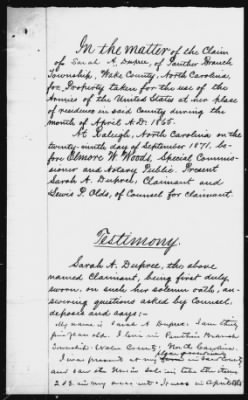 In the matter of the Claim
of Sarah A. Dupree, of Panther Branch
Township, Wake County, North Carolina,
for Property taken for the use of the
Armies of the United States at her place
of residence in said County during the
month of April A.D. 1865.
At Raleigh, North Carolina on the
twenty-ninth day of September 1871, be-
fore Elmore W. Woods, Special Commis-
sioner and Notary Public. Present
Sarah A. Dupree, Claimant and
Lewis P. Olds, of Counsel for claimant.
Testimony.
Sarah A. Dupree, the above
named Claimant, being first duly
sworn, on such her solemn oath, an-
swering questions asked by Counsel
deposes and says:-
My name is Sarah A. Dupree. I am thirty
five years old. I live in Panther Branch
Township Wake County, North Carolina.
I was present at my in said County
and saw the Union Soldiers take the items
2 & 3 in my account. It was in April 1865